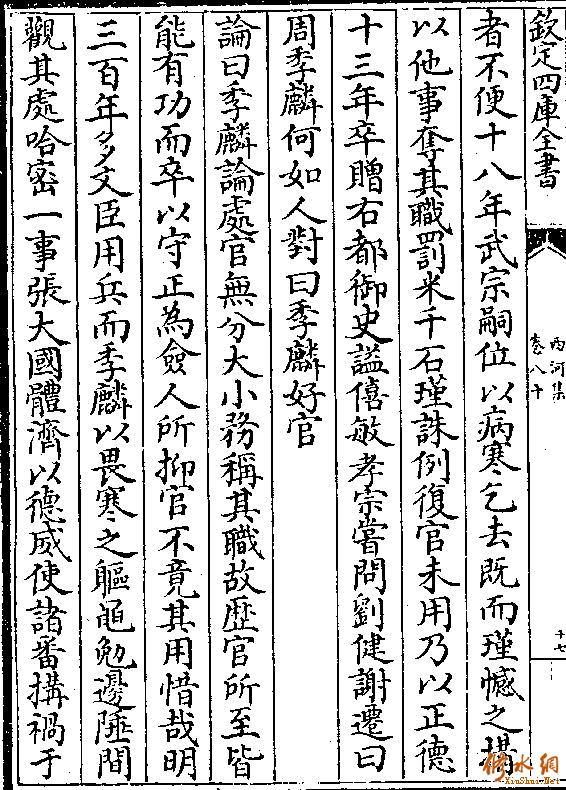 欽定四庫全書
西河集
卷八十
十七
者不便十八年武宗嗣位以病寒乞去既而瑾憾之搆
以他事奪其職罰米千石瑾誅例復官未用乃以正德
十三年卒贈右都御史謚僖敏孝宗嘗問劉健謝遷曰
周季麟何如人對曰季麟好官
論曰季麟論處官無分大小務稱其職故歴官所至皆
能有功而卒以守正為僉人所抑官不竟其用惜哉明
三百年多文臣用兵而季麟以畏寒之軀黽勉邊陲間
觀其處哈密一事張大國體濟以德威使諸番搆禍于
修水網
XiuShui.Net